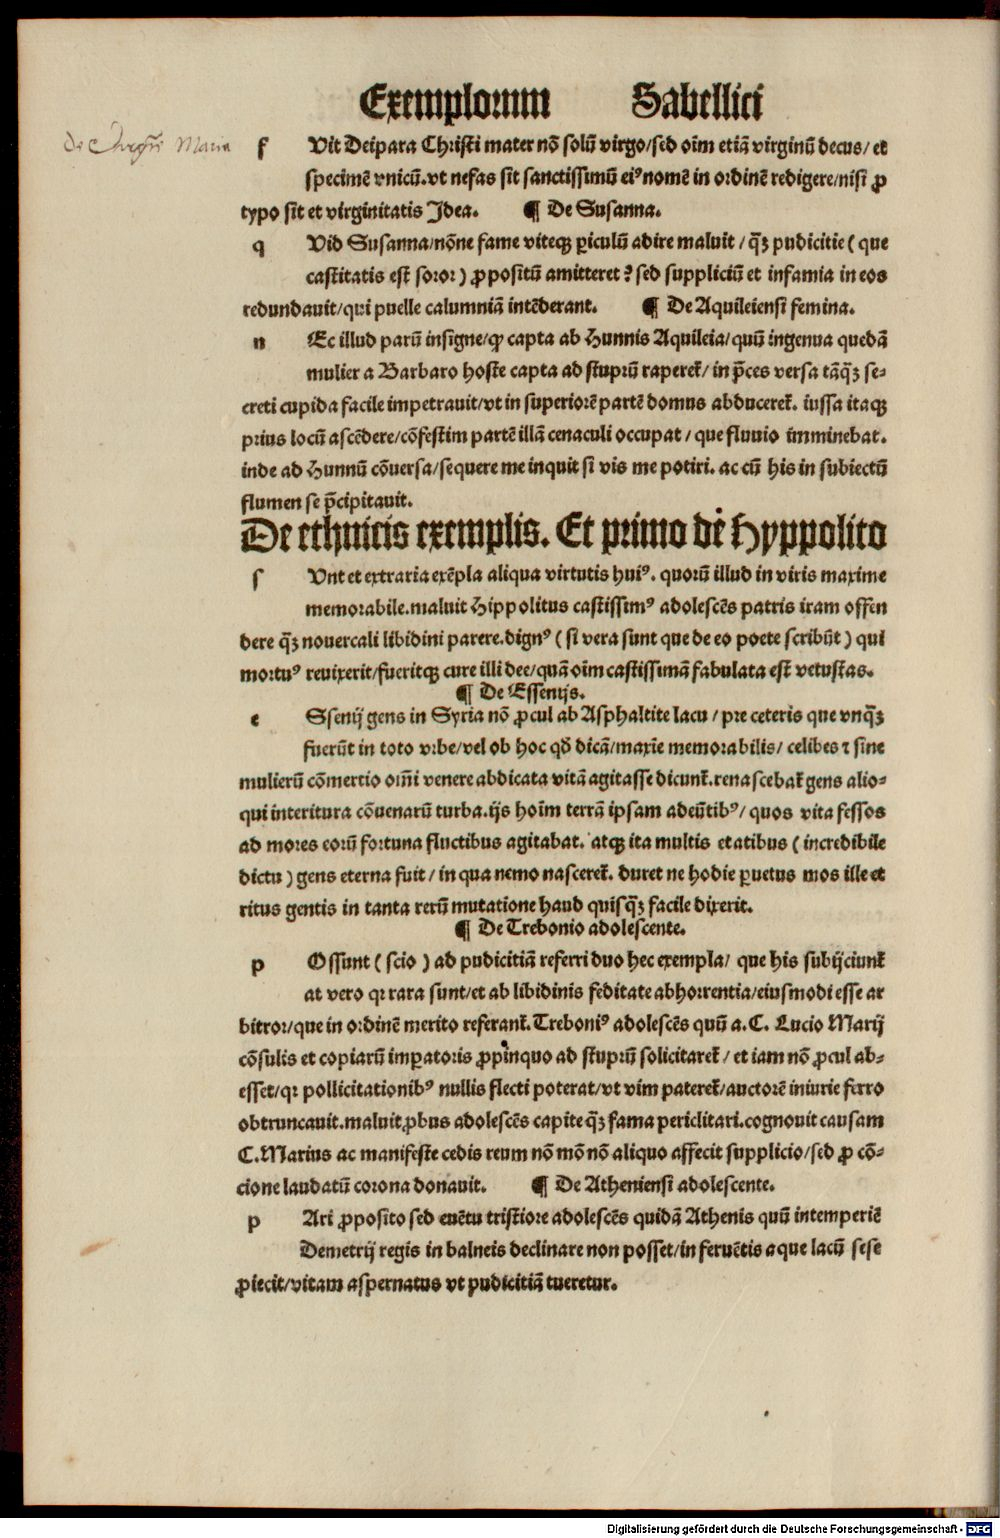 Exemplorum Sabellici
De Virgine Maria
f Vit Deipara Christi mater nō solū virgo/sed oīm etiā virginū decus/ et
specimē vnicū.vt nefas sit sanctissimū eiꝰ nomē in ordinē redigere/nisi ꝓ
typo sit et virginitatis Idea. ¶ De Susanna.
q Vid Susanna/nōne fame viteqꝫ ꝑiculū adire maluit / qꝫ̄ pudicitie ( que
castitatis est soror ) ꝓpositū amitteret ? sed suppliciū et infamia in eos
redundauit/qui puelle calumniā intēderant. ¶ De Aquileiensi femina.
n Ec illud parū insigne/ꝙ capta ab Hunnis Aquileia/ quū ingenua quedā
mulier a Barbaro hoste capta ad stuprū raperet̄/ in p̄ces versa tāqꝫ̄ se-
creti cupida facile impetrauit/vt in superiorē partē domus abduceret̄. iussa itaqꝫ
prius locū ascēdere/cōfestim partē illā cenaculi occupat / que fluuio imminebat.
inde ad Hunnū cōuersa/sequere me inquit si vis me potiri. ac cū his in subiectū
flumen se p̄cipitauit.
De ethnicis exemplis. Et primo de Hyppolito
s Vnt et extraria exēpla aliqua virtutis huiꝰ. quorū illud in viris maxime
memorabile.maluit Hippolitus castissimꝰ adolescēs patris iram offen
dere qꝫ̄ nouercali libidini parere.dignꝰ ( si vera sunt que de eo poete scribūt ) qui
mortuꝰ reuixerit/fueritqꝫ cure illi dee/quā oīm castissimā fabulata est vetustas.
¶ De Essenijs.
e Ssenij gens in Syria nō ꝓcul ab Asphaltite lacu / pre ceteris que vnqꝫ̄
fuerūt in toto vrbe/vel ob hoc qđ dicā/maxīe memorabilis/ celibes ⁊ sine
mulierū cōmertio omni venere abdicata vitā agitasse dicunt̄.renascebat̄ gens alio-
qui interitura cōuenarū turba.ijs hoīm terrā ipsam adeūtibꝰ/ quos vita fessos
ad mores eorū fortuna fluctibus agitabat. atqꝫ ita multis etatibus ( incredibile
dictu ) gens eterna fuit / in qua nemo nasceret̄. duret ne hodie ꝑuetus mos ille et
ritus gentis in tanta rerū mutatione haud quisqꝫ̄ facile dixerit.
¶ De Trebonio adolescente.
p Ossunt ( scio ) ad pudicitiā referri duo hec exempla/ que his subijciunt̄
at vero qꝛ rara sunt/et ab libidinis feditate abhorrentia/eiusmodi esse ar
bitror/que in ordinē merito referant̄. Treboniꝰ adolescēs quū a.C. Lucio Marij
cōsulis et copiarū imꝑatoris ꝓpinquo ad stuprū solicitaret̄ / et iam nō ꝓcul ab-
esset/qꝛ pollicitationibꝰ nullis flecti poterat/vt vim pateret̄/auctorē iniurie ferro
obtruncauit.maluit ꝓbus adolescēs capite qꝫ̄ fama periclitari.cognouit causam
C.Marius ac manifeste cedis reum nō mō nō aliquo affecit supplicio/sed ꝓ cō-
cione laudatū corona donauit. ¶ De Atheniensi adolescente.
p Ari ꝓposito sed euētu tristiore adolescēs quidā Athenis quū intemperiē
Demetrij regis in balneis declinare non posset/in feruētis aque lacū sese
ꝓiecit/vitam aspernatus vt pudicitiā tueretur.
Digitalisierung gefördert durch die Deutsche Forschungsgemeinschaft - DFG